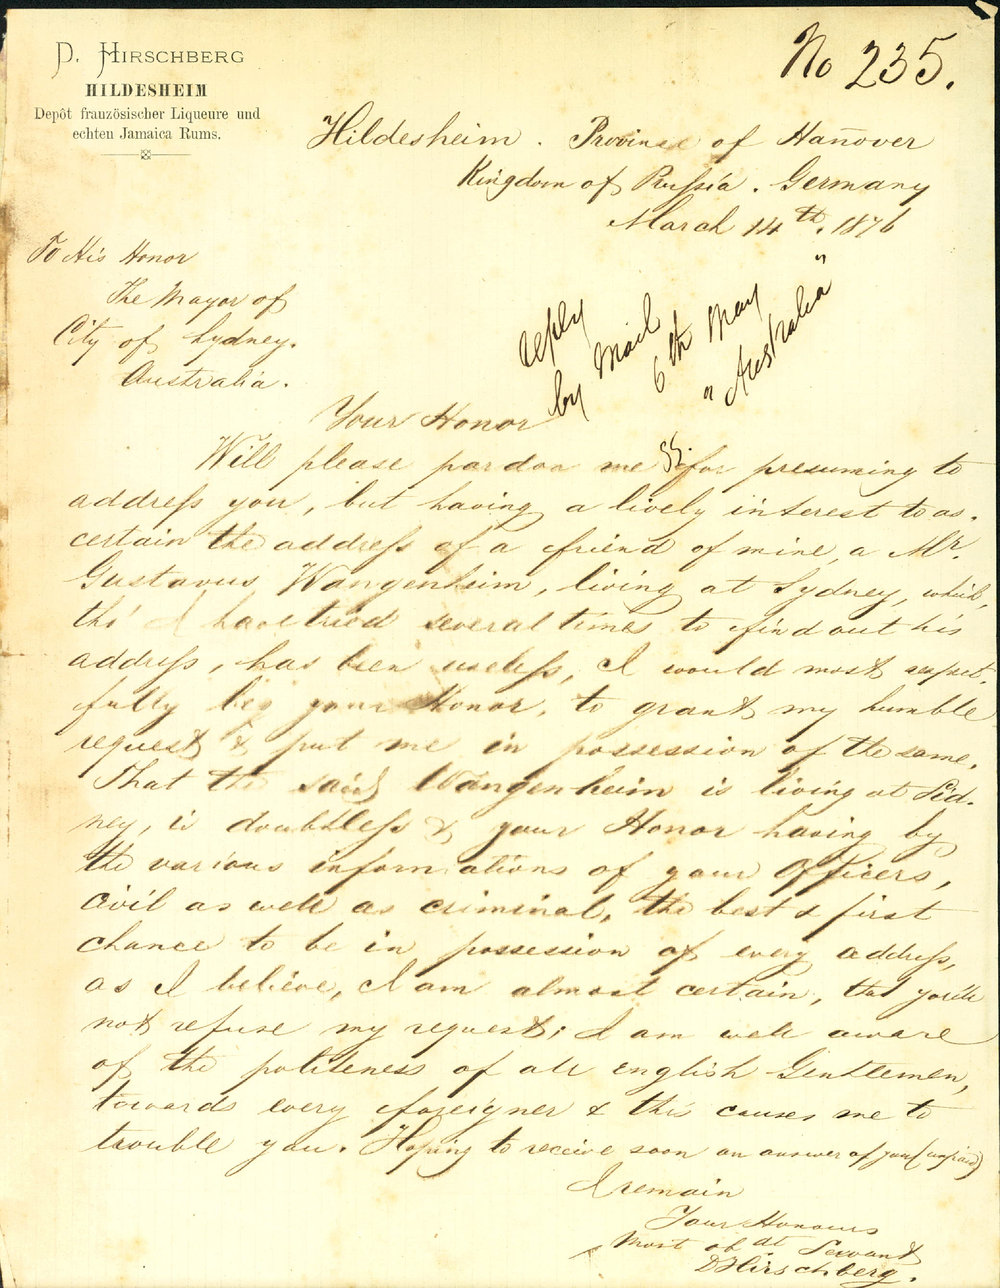 D. HIRSCHBERG
HILDESHEIM
Depôt französischer Liqueure und
echten Jamaica Rums.
No 235.
Hildesheim. Province of Hanover
Kingdom of Prussia. Germany
March 14th. 1876
To His Honor
The Mayor of
City of Sydney.
Australia.
reply
by Mail
6th May
"Australia"
Your Honor
Will please pardon me for presuming to
address you, but having a lively interest to as-
certain the address of a friend of mine, a Mr.
Gustavus Wangenheim, living at Sydney, which,
tho' I have tried several times to find out his
address, has been useless, I would most respect-
fully beg your Honor, to grant my humble
request & put me in possession of the same.
That the said Wangenheim is living at Sid-
ney, is doubtless & your Honor having by
the various informations of your Officers,
civil as well as criminal, the best & first
chance to be in possession of every address,
as I believe, I am almost certain, that you'll
not refuse my request; I am well aware
of the politeness of all english Gentlemen,
towards every foreigner & this causes me to
trouble you. Hoping to receive soon an answer of your (unpaid)
I remain
Your Honours
Most obdt Servant
D Hirschberg.